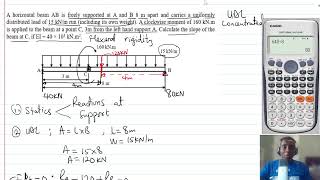 A horizontal beam AB is freely supported at A and B 8 m apart and carries a uniformly
distributed load of 15 kN/m run (including its own weight). A clockwise moment of 160 kN m
is applied to the beam at a point C, 3m from the left hand support A. Calculate the slope of
the beam at C, if EI = 40 × 10³ kN m².
UDL
Concentrated
Flexural rigidity
160 kN m
120KN
15 kN/m
A
C
B
3 m
4m
40KN
80KN
① Statics
Reactions at
Support
② UDL ; A = L×B ; L = 8m
W = 15KN/m
A = 15×8
A = 120KN
CASIO